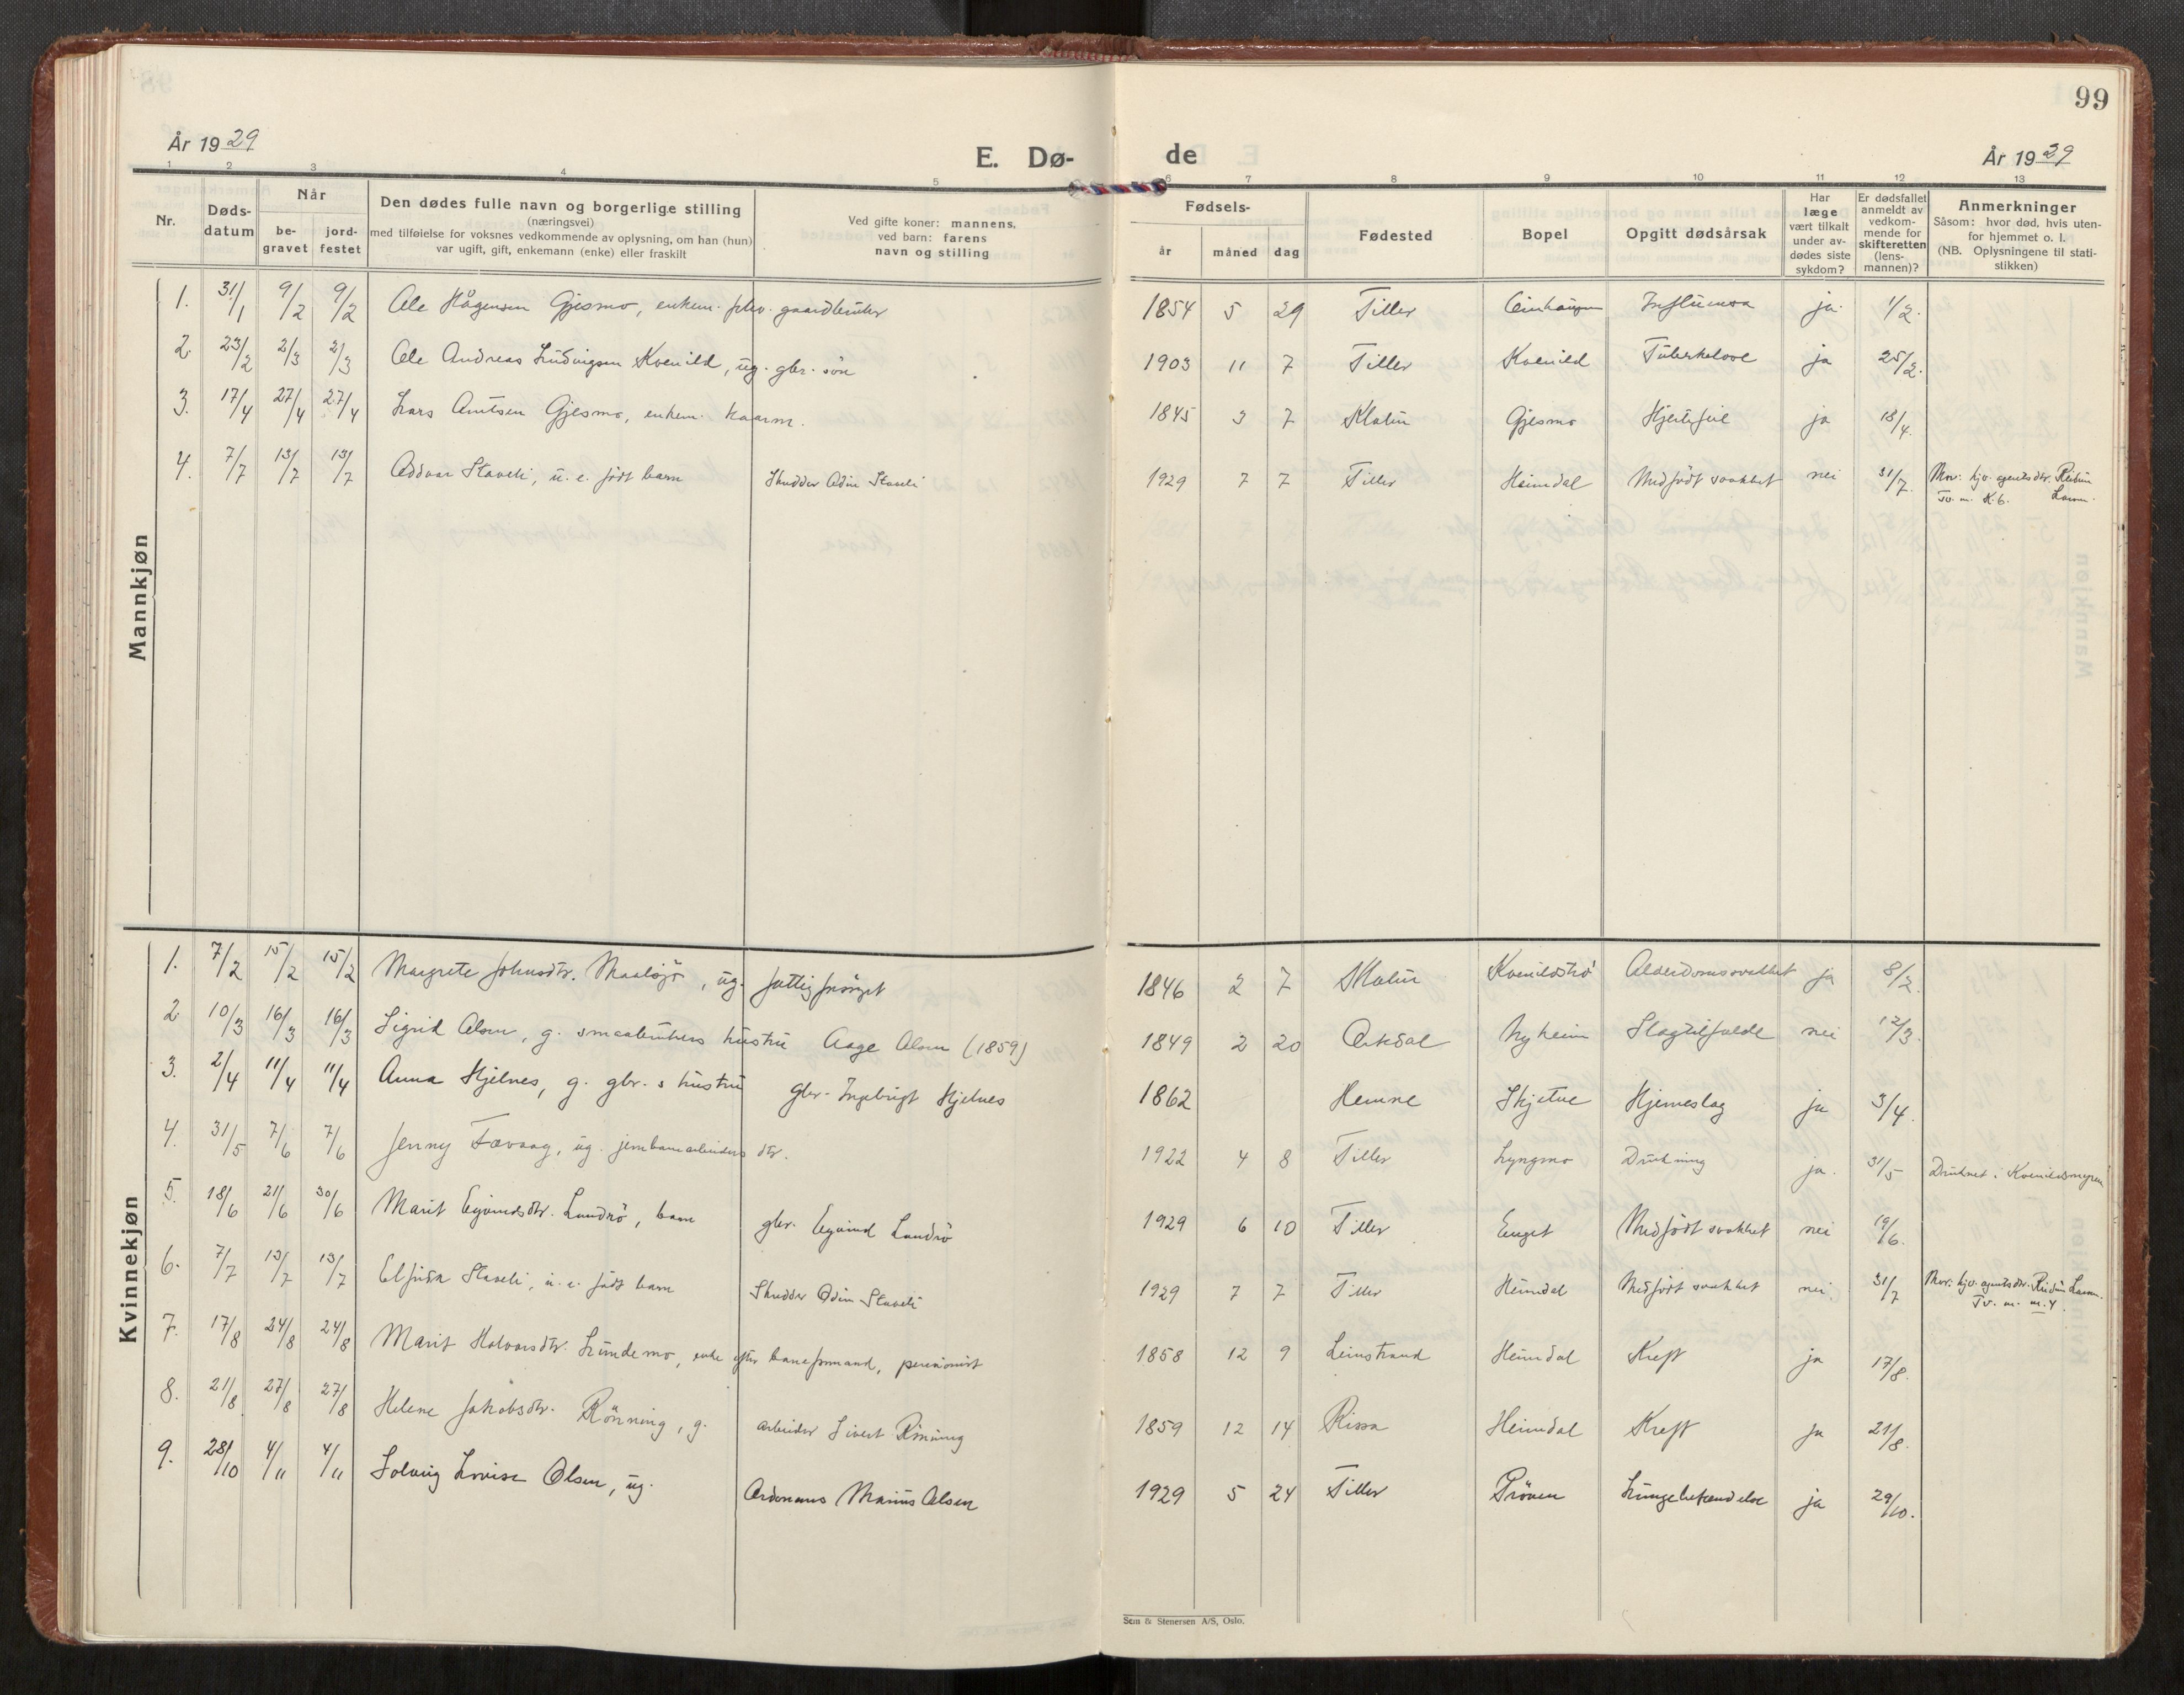 99
År 1929
E. Dø-
de
År 1929
1 2 3 4 5 6 7 8 9 10 11 12 13
Nr.
Døds-
datum
Når
be-
gravet
jord-
festet
Den dødes fulle navn og borgerlige stilling
(næringsvei)
med tilføielse for voksnes vedkommende av oplysning, om han (hun)
var ugift, gift, enkemann (enke) eller fraskilt
Ved gifte koner: mannens,
ved barn: farens
navn og stilling
Fødsels-
år
måned
dag
Fødested
Bopel
Opgitt dødsårsak
Har
læge
vært tilkalt
under av-
dødes siste
sykdom?
Er dødsfallet
anmeldt av
vedkom-
mende for
skifteretten
(lens-
mannen)?
Anmerkninger
Såsom: hvor død, hvis uten-
for hjemmet o. l.
(NB. Oplysningene til stati-
stikken)
Mannkjøn
1. 31/1 9/2 9/2 Ole Hågensen Gjesmo, enkem. gaardbruker 1854 5 29 Tiller Influensa ja. 1/2.
2. 23/2 2/3 2/3 Ole Andreas Ludvigsen Kvenild, ug. gbr. sön 1903 11 7 Tiller Kvenild Tuberkelose ja 25/2.
3. 17/4 27/4 27/4 Lars Arntsen Gjesmo, enkem. kaarm. 1845 3 7 Klæbu Gjesmo Hjertefeil ja 18/4.
4. 7/7 13/7 13/7 Oddvar Staveli, u. e. född barn Skredder Odin Staveli 1929 7 7 Tiller Heimdal Medfödt svakhet nei 31/7. Mor: hjv. agentsdtr. Reidun
Tv. m. K. 6. Larsen.
Kvinnekjøn
1. 7/2 15/2 15/2 Margrete Johnsdtr. Maalsjö, ug. fattigforsörget 1846 2 7 Klæbu Kvenildströ Alderdomssvakhet ja 8/2.
2. 10/3 16/3 16/3 Sigrid Olsen, g. smaabrukers hustru Aage Olsen (1859) 1849 2 20 Orkdal Nyheim Slagtilfælde nei 12/3.
3. 2/4 11/4 11/4 Anna Hjelnes, g. gbr.s hustru gbr. Ingebrigt Hjelnes 1862 Hemne Skjetne Hjerneslag ja 3/4.
4. 31/5 7/6 7/6 Jenny Tevaag, ug. jernbanearbeiders dtr. 1922 4 8 Tiller Lyngmo Drukning ja. 31/5 Druknet i Kvenildsmyren
5. 18/6 21/6 30/6 Marit Eyvindsdtr. Lundrö, barn gbr. Eyvind Lundrö 1929 6 10 Tiller Enget Medfödt svakhet nei 19/6.
6. 7/7 13/7 13/7 Elfrida Staveli, u. e. född barn Skredder Odin Staveli 1929 7 7 Tiller Heimdal Medfödt svakhet nei. 31/7 Mor: hjv. agentsdtr. Reidun Larsen.
Tv. m. m. 4.
7. 17/8 24/8 24/8 Marit Halvorsdtr. Lundemo, enke efter baneformand, pensionist 1858 12 9 Leinstrand Heimdal Kreft ja 17/8.
8. 21/8 27/8 27/8 Helene Jakobsdtr. Rönning, g. arbeider Sivert Rönning 1859 12 14 Rissa Heimdal Kreft ja 21/8.
9. 28/10 4/11 4/11 Solveig Lovise Olsen, ug. Ordonans Marius Olsen 1929 5 24 Tiller Pröven Lungebetændelse ja 29/10.
Sem & Stenersen A/S, Oslo.